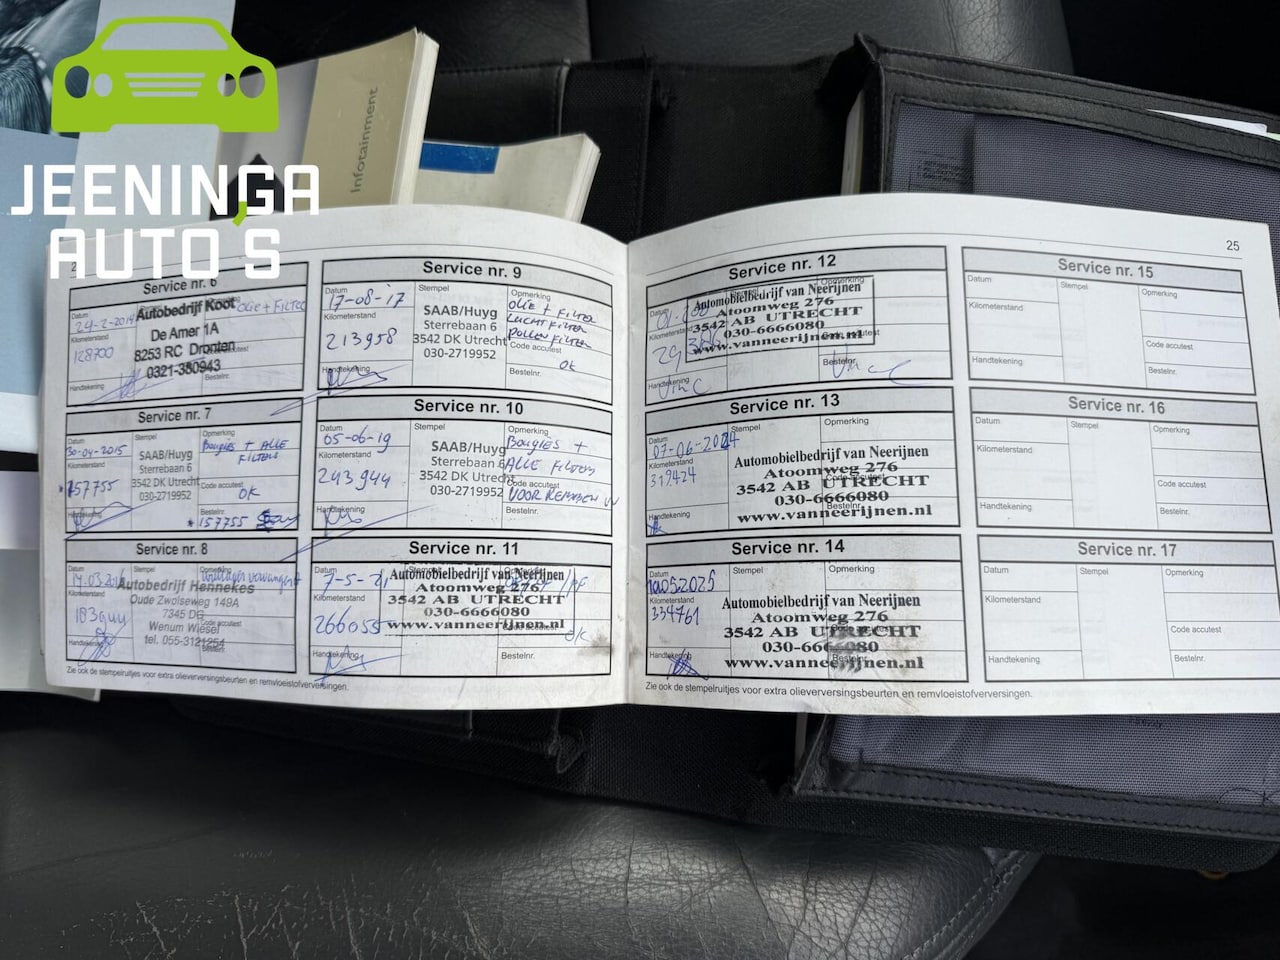 JEENINGA
AUTO'S
Infotainment
25
Service nr. 6
Datum
24-2-2014
olie + FILTER
Autobedrijf Koot
De Amer 1A
8253 RC Dronten
0321-380943
Kilometerstand
128700
Handtekening
Bestelnr.
Service nr. 7
Datum
Stempel
Opmerking
30-04-2015
Bougies + ALLE
FILTERS
SAAB/Huyg
Sterrebaan 6
3542 DK Utrecht
030-2719952
Kilometerstand
157755
Code accutest
OK
Handtekening
Bestelnr.
*157755
Service nr. 8
Datum
Autobedrijf Hennekes
Oude Zwolseweg 149A
7345 DG
Wenum Wiesel
tel. 055-3121254
Kilometerstand
Code accutest
Handtekening
Bestelnr.
Zie ook de stempelruitjes voor extra olieverversingsbeurten en remvloeistofverversingen.
Service nr. 9
Datum
Stempel
Opmerking
17-08-'17
olie + FILTER
LUCHTFILTER
Pollen FILTER
SAAB/Huyg
Sterrebaan 6
3542 DK Utrecht
030-2719952
Kilometerstand
213958
Code accutest
OK
Handtekening
Bestelnr.
Service nr. 10
Datum
Stempel
Opmerking
05-06-19
Bougies +
ALLE FILTERS
VOOR REMMEN VV
SAAB/Huyg
Sterrebaan 6
3542 DK Utrecht
030-2719952
Kilometerstand
243944
Handtekening
Bestelnr.
Service nr. 11
Datum
7-5-21
Automobielbedrijf van Neerijnen
Atoomweg 276
3542 AB UTRECHT
030-6666080
www.vanneerijnen.nl
Kilometerstand
266055
OK
Handtekening
Bestelnr.
Service nr. 12
Opmerking
Automobielbedrijf van Neerijnen
Atoomweg 276
3542 AB UTRECHT
030-6666080
www.vanneerijnen.nl
Kilometerstand
Handtekening
Bestelnr.
Service nr. 13
Datum
Stempel
Opmerking
07-06-2024
Automobielbedrijf van Neerijnen
Atoomweg 276
3542 AB UTRECHT
030-6666080
www.vanneerijnen.nl
Kilometerstand
319424
Handtekening
Bestelnr.
Service nr. 14
Datum
Stempel
Opmerking
10052025
Automobielbedrijf van Neerijnen
Atoomweg 276
3542 AB UTRECHT
030-6666080
www.vanneerijnen.nl
Kilometerstand
334761
Handtekening
Bestelnr.
Zie ook de stempelruitjes voor extra olieverversingsbeurten en remvloeistofverversingen.
Service nr. 15
Datum
Stempel
Opmerking
Kilometerstand
Code accutest
Handtekening
Bestelnr.
Service nr. 16
Datum
Stempel
Opmerking
Kilometerstand
Code accutest
Handtekening
Bestelnr.
Service nr. 17
Datum
Stempel
Opmerking
Kilometerstand
Code accutest
Handtekening
Bestelnr.